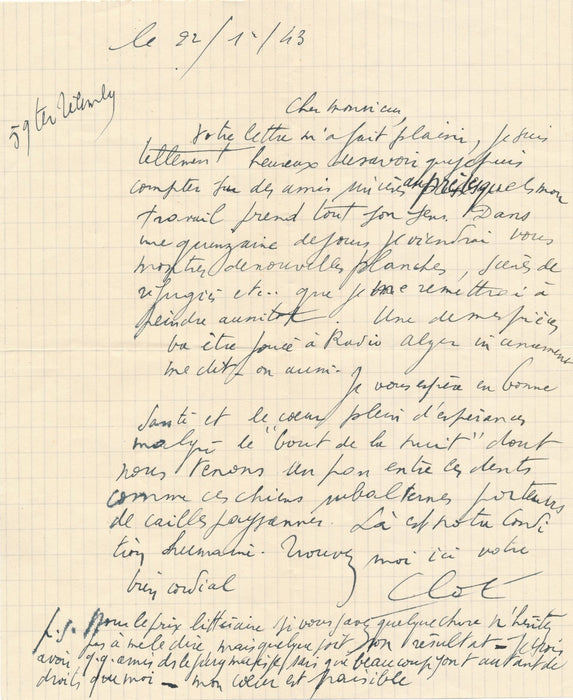 le 22/1/43
59 ter Télemly
Cher Monsieur,
Votre lettre m'a fait plaisir, je suis
tellement heureux de savoir que je puis
compter sur des amis sincères auprès desquels mon
travail prend tout son sens. Dans
une quinzaine de jours je viendrai vous
montrer de nouvelles planches, scènes de
réfugiés etc.. que je me remettrai à
peindre aussitôt. Une de mes pièces
va être jouée à Radio Alger incessamment
me dit-on aussi.
Je vous espère en bonne
santé et le cœur plein d'espérances
malgré le "bout de la nuit" dont
nous tenons un pan entre les dents
comme ces chiens subalternes porteurs
de cailles paysannes. Là est notre condi
tion humaine. Trouvez moi ici votre
bien cordial
Clot
p.s. Pour le prix littéraire si vous savez quelque chose n'hésitez
pas à me le dire, mais quelque soit son résultat - je crois
avoir q.q. amis ds le jury mais je sais que beaucoup ont autant de
droits que moi - mon cœur est paisible